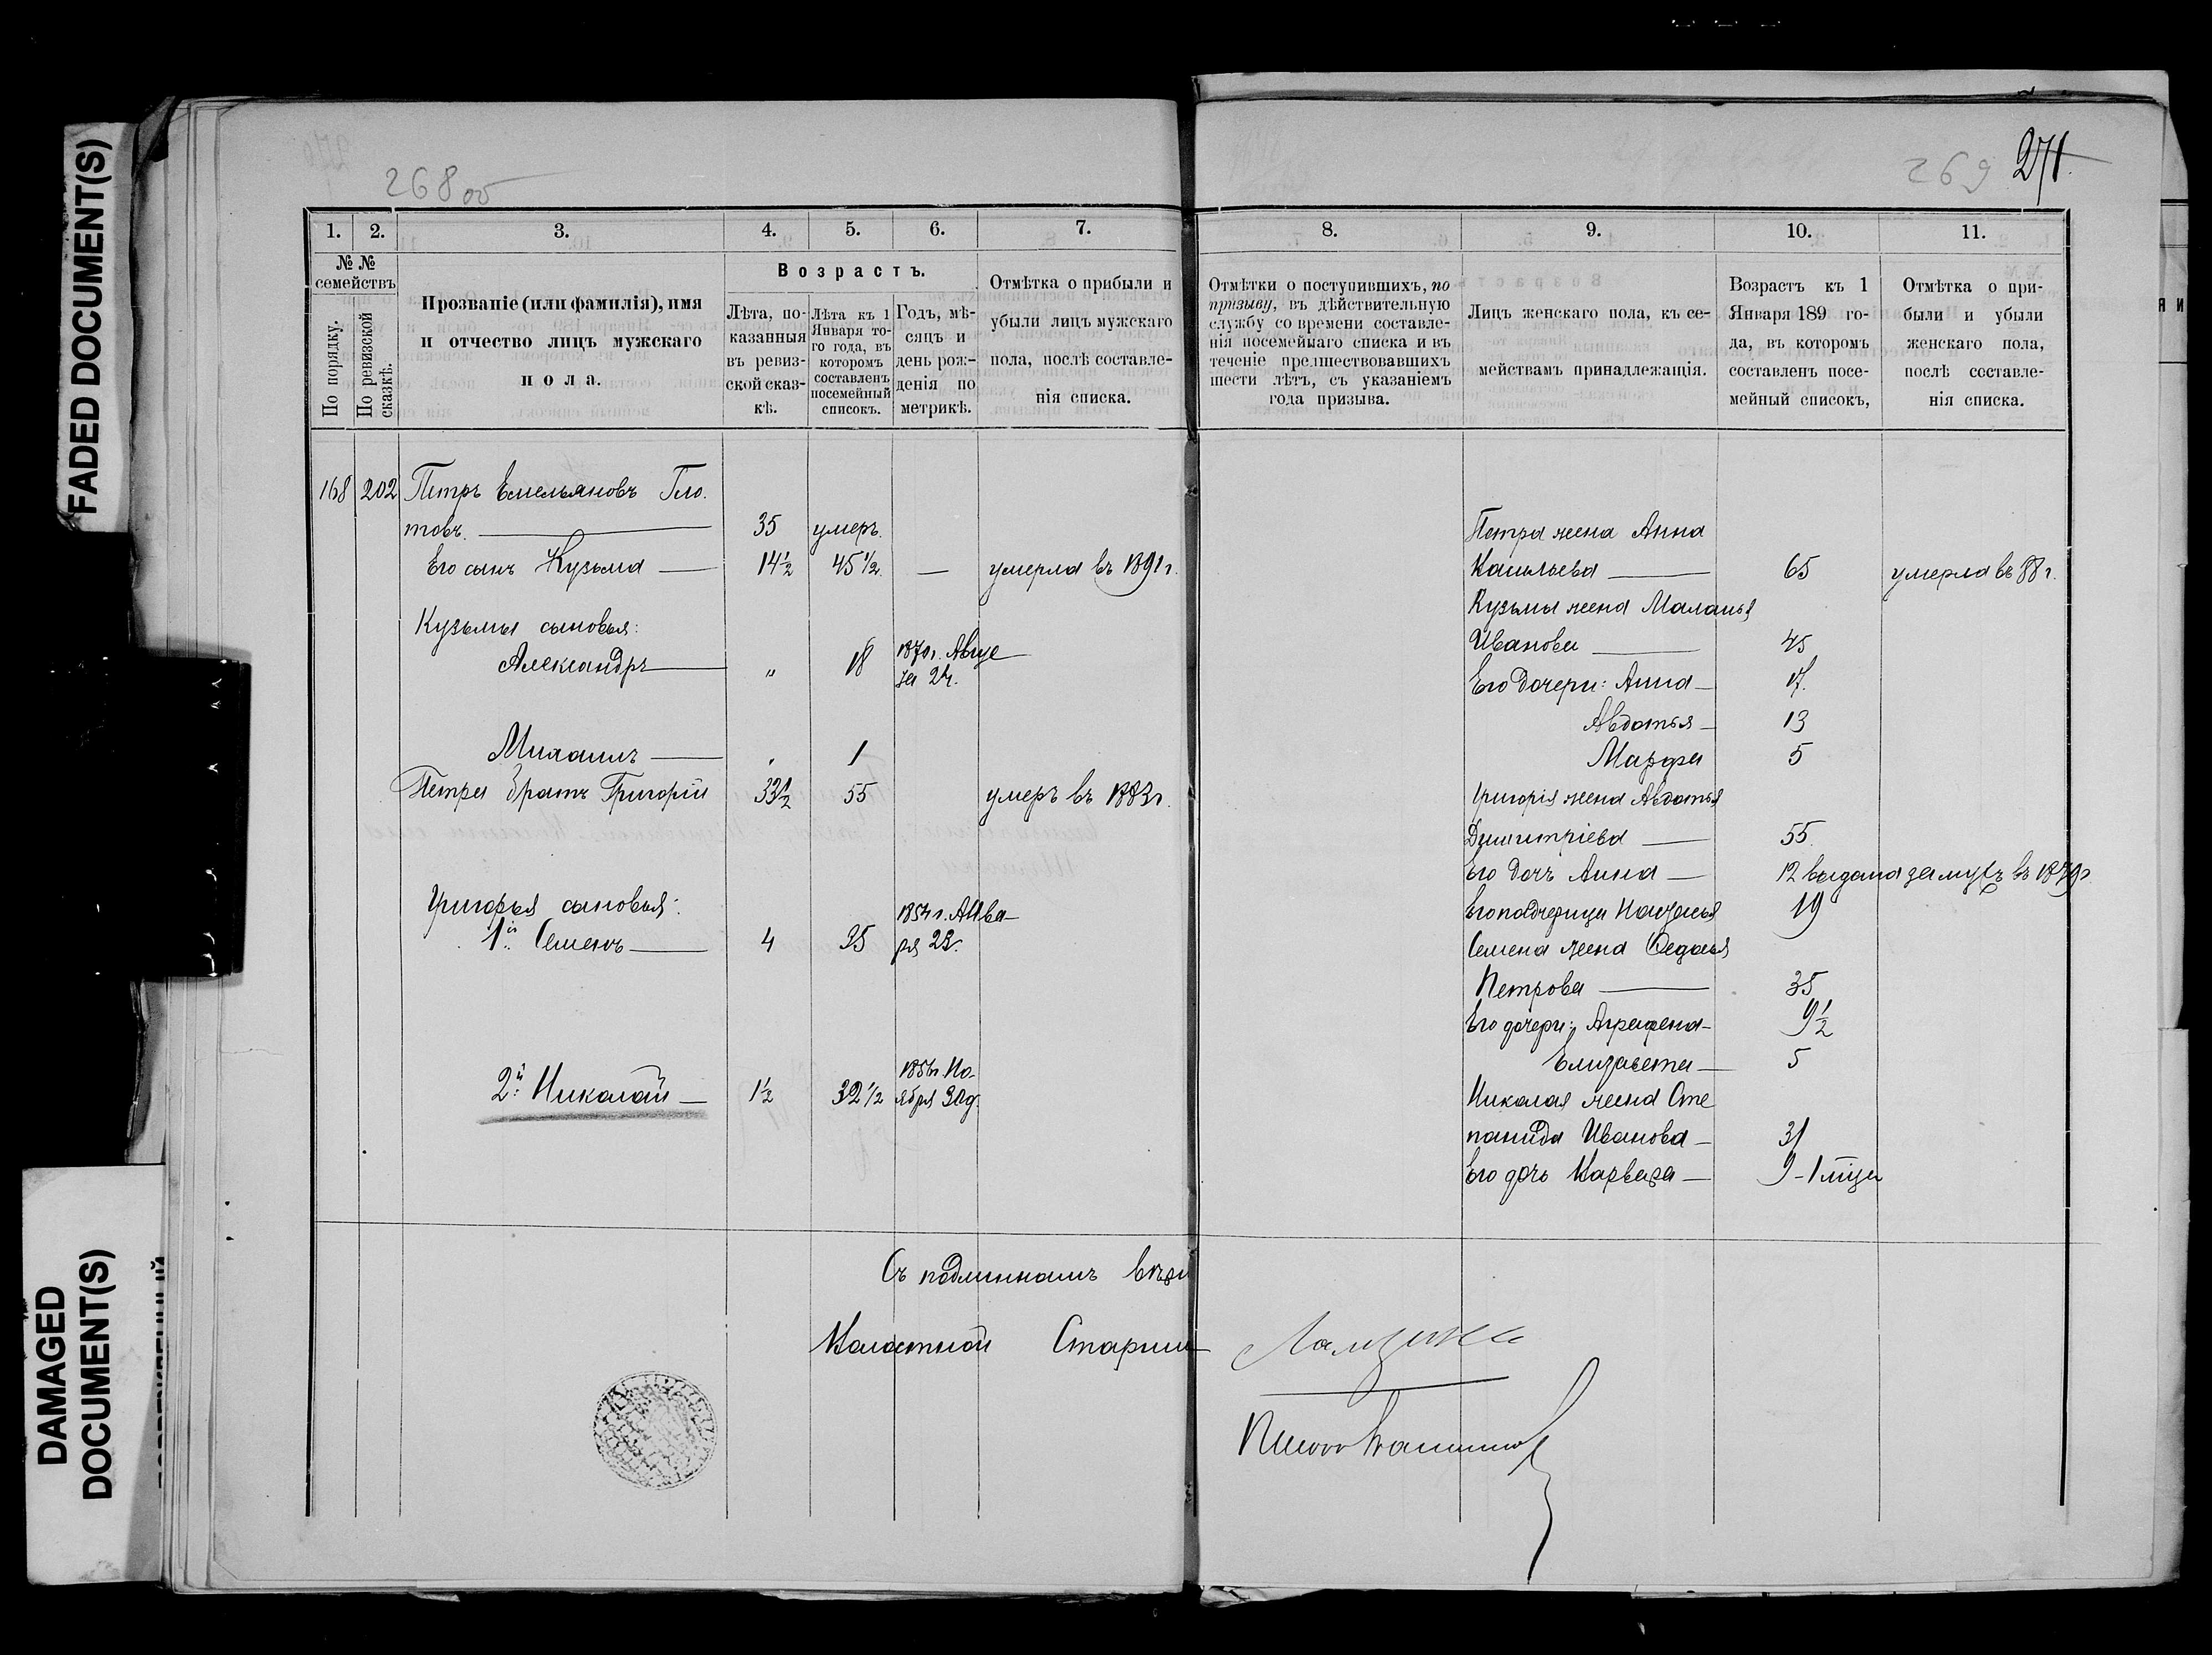 FADED DOCUMENT(S)
DAMAGED
DOCUMENT(S)
268 об
269 271
1. 2. 3. 4. 5. 6. 7.
№ №
семействъ
По порядку.
По ревизской
сказкѣ.
Прозваніе (или фамилія), имя
и отчество лицъ мужскаго
пола.
Возрастъ.
Лѣта, по-
казанныя
въ ревиз-
ской сказ-
кѣ.
Лѣта къ 1
Января то-
го года, въ
которомъ
составленъ
посемейный
списокъ.
Годъ, мѣ-
сяцъ и
день рож-
денія по
метрикѣ.
Отмѣтка о прибыли и
убыли лицъ мужскаго
пола, послѣ составле-
нія списка.
168 202 Петръ Емельяновъ Гло-
товъ. 35 умеръ.
Его сынъ Кузьма 14½ 45½ — умерла въ 1891 г.
Кузьмы сыновья:
Александръ " 18 1870 г. Авгу-
ста 24.
Михаилъ " 1
Петра братъ Григорій 33½ 55 умеръ въ 1883 г.
Григорья сыновья:
1й Семенъ 4 35 1854 г. Янва-
ря 23.
2й Николай 1½ 32½ 1856 г. Но-
ября 30 д.
Съ подлиннымъ вѣр
Волостной Старши
8. 9. 10. 11.
Отмѣтки о поступившихъ, по
призыву, въ дѣйствительную
службу со времени составле-
нія посемейнаго списка и въ
теченіе предшествовавшихъ
шести лѣтъ, съ указаніемъ
года призыва.
Лицъ женскаго пола, къ се-
мействамъ принадлежащія.
Возрастъ къ 1
Января 189 го-
да, въ которомъ
составленъ посе-
мейный списокъ,
Отмѣтка о при-
были и убыли
женскаго пола,
послѣ составле-
нія списка.
Петра жена Анна
Васильева 65 умерла въ 88 г.
Кузьмы жена Маланья
Иванова 45
Его дочери: Анна 17.
Авдотья 13
Марфа 5
Григорія жена Авдотья
Димитріева 55.
Его дочь Анна 12 выдана замужъ въ 1879 г.
Его падчерица Настасья 19
Семена жена Федосья
Петрова 35
Его дочери: Аграфена 9½
Елизавета 5
Николая жена Сте
панида Иванова 31
Его дочь Варвара 9-1 мѣца